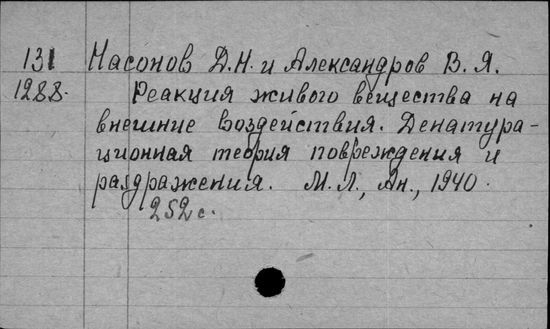 131 Насонов Д.Н. и Александров В.Я.
1288. Реакция живого вещества на
внешние воздействия. Денатура-
ционная теория повреждения и
раздражения. М.Л., Ан., 1940.
252 с.